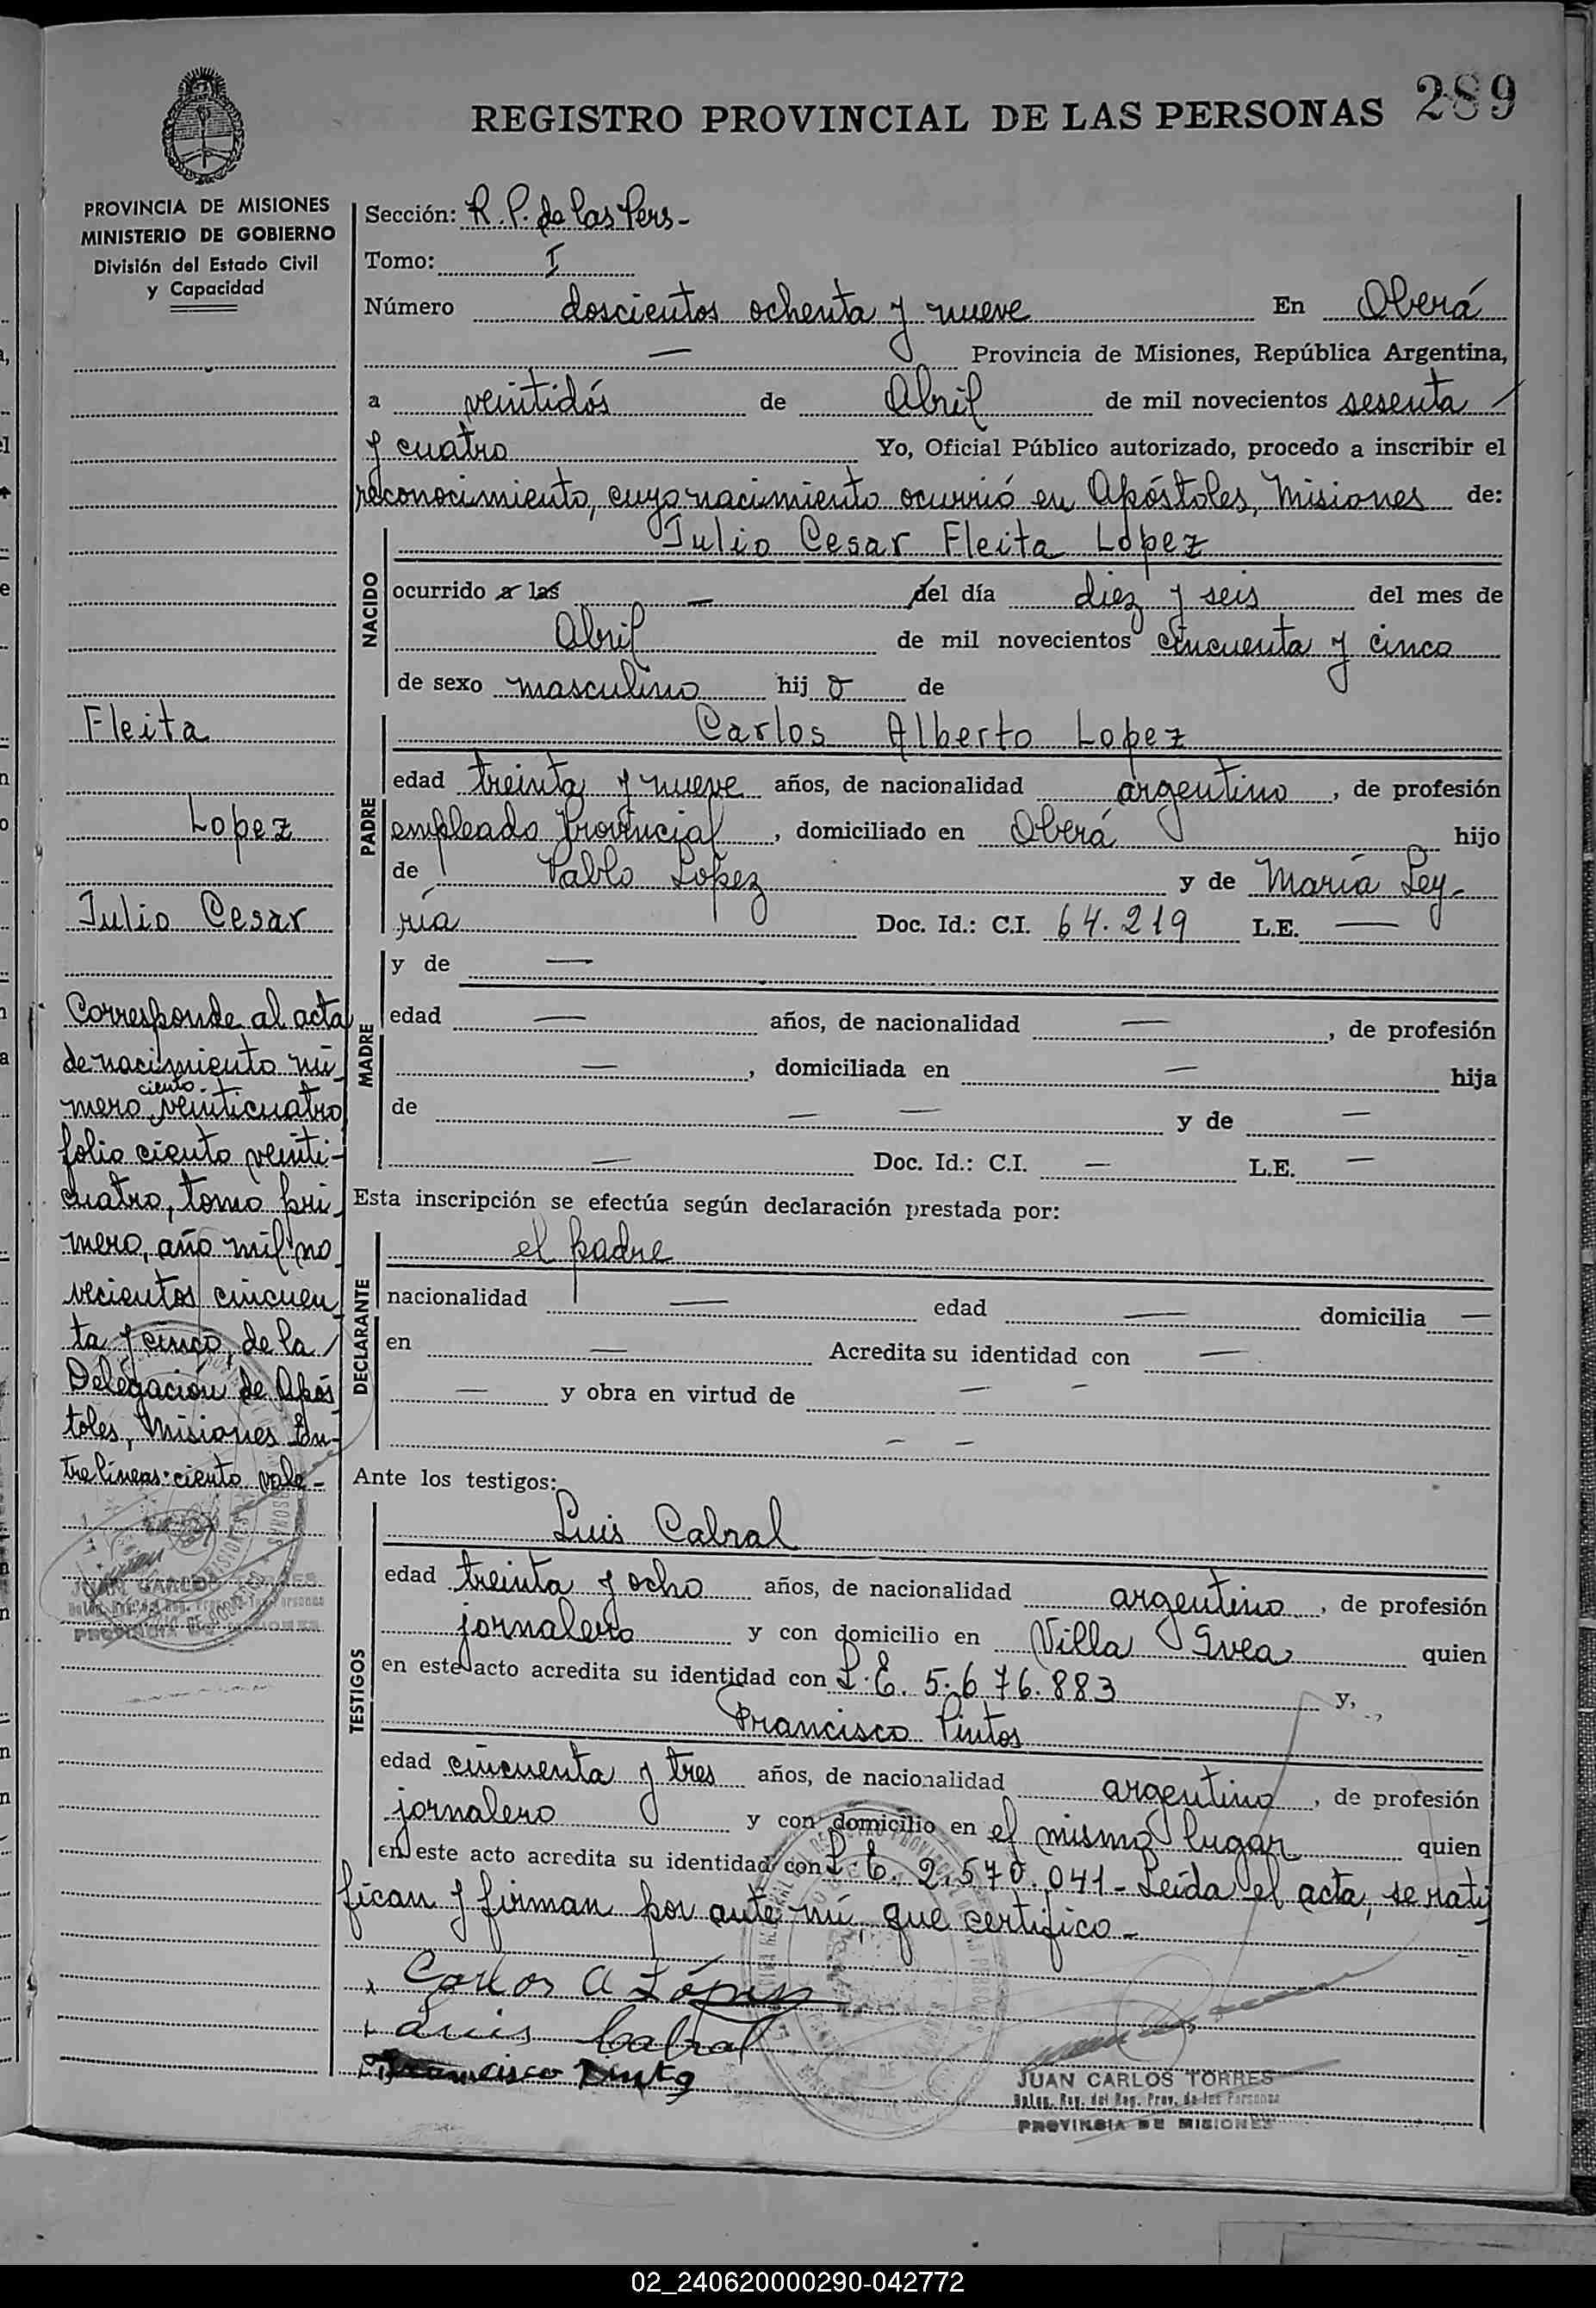 289
REGISTRO PROVINCIAL DE LAS PERSONAS
PROVINCIA DE MISIONES
MINISTERIO DE GOBIERNO
División del Estado Civil
y Capacidad
Sección: R. P. de las Pers-
Tomo: I
Número doscientos ochenta y nueve En Oberá
— Provincia de Misiones, República Argentina,
a veintidós de Abril de mil novecientos sesenta
y cuatro Yo, Oficial Público autorizado, procedo a inscribir el
reconocimiento, cuyo nacimiento ocurrió en Apóstoles, Misiones de:
NACIDO
Julio Cesar Fleita Lopez
ocurrido a las — del día diez y seis del mes de
Abril de mil novecientos cincuenta y cinco
de sexo masculino hij o de
PADRE
Carlos Alberto Lopez
edad treinta y nueve años, de nacionalidad argentino, de profesión
empleado Provincial, domiciliado en Oberá hijo
de Pablo Lopez y de María Ley-
ría Doc. Id.: C.I. 64.219 L.E. —
MADRE
y de —
edad — años, de nacionalidad —, de profesión
—, domiciliada en — hija
de — — y de —
— Doc. Id.: C.I. — L.E. —
Esta inscripción se efectúa según declaración prestada por:
DECLARANTE
el padre
nacionalidad — edad — domicilia —
en — Acredita su identidad con —
— y obra en virtud de — —
— —
Ante los testigos:
TESTIGOS
Luis Cabral
edad treinta y ocho años, de nacionalidad argentino, de profesión
jornalero y con domicilio en Villa Svea quien
en este acto acredita su identidad con L.E. 5.676.883 y,
Francisco Pintos
edad cincuenta y tres años, de nacionalidad argentino, de profesión
jornalero y con domicilio en el mismo lugar quien
en este acto acredita su identidad con L.E. 2.570.041- Leída el acta, se rati
fican y firman por ante mí, que certifico-
Carlos A López
Luis Cabral
Francisco Pinto
JUAN CARLOS TORRES
PROVINCIA DE MISIONES
Fleita
Lopez
Julio Cesar
Corresponde al acta
de nacimiento nú
ciento-
mero veinticuatro
folio ciento veinti-
cuatro, tomo pri
mero, año mil no
vecientos cincuen
ta y cinco, de la
Delegación de Após
toles, Misiones En-
tre líneas: ciento vale-
JUAN CARLOS TORRES
PROVINCIA DE MISIONES
02_240620000290-042772